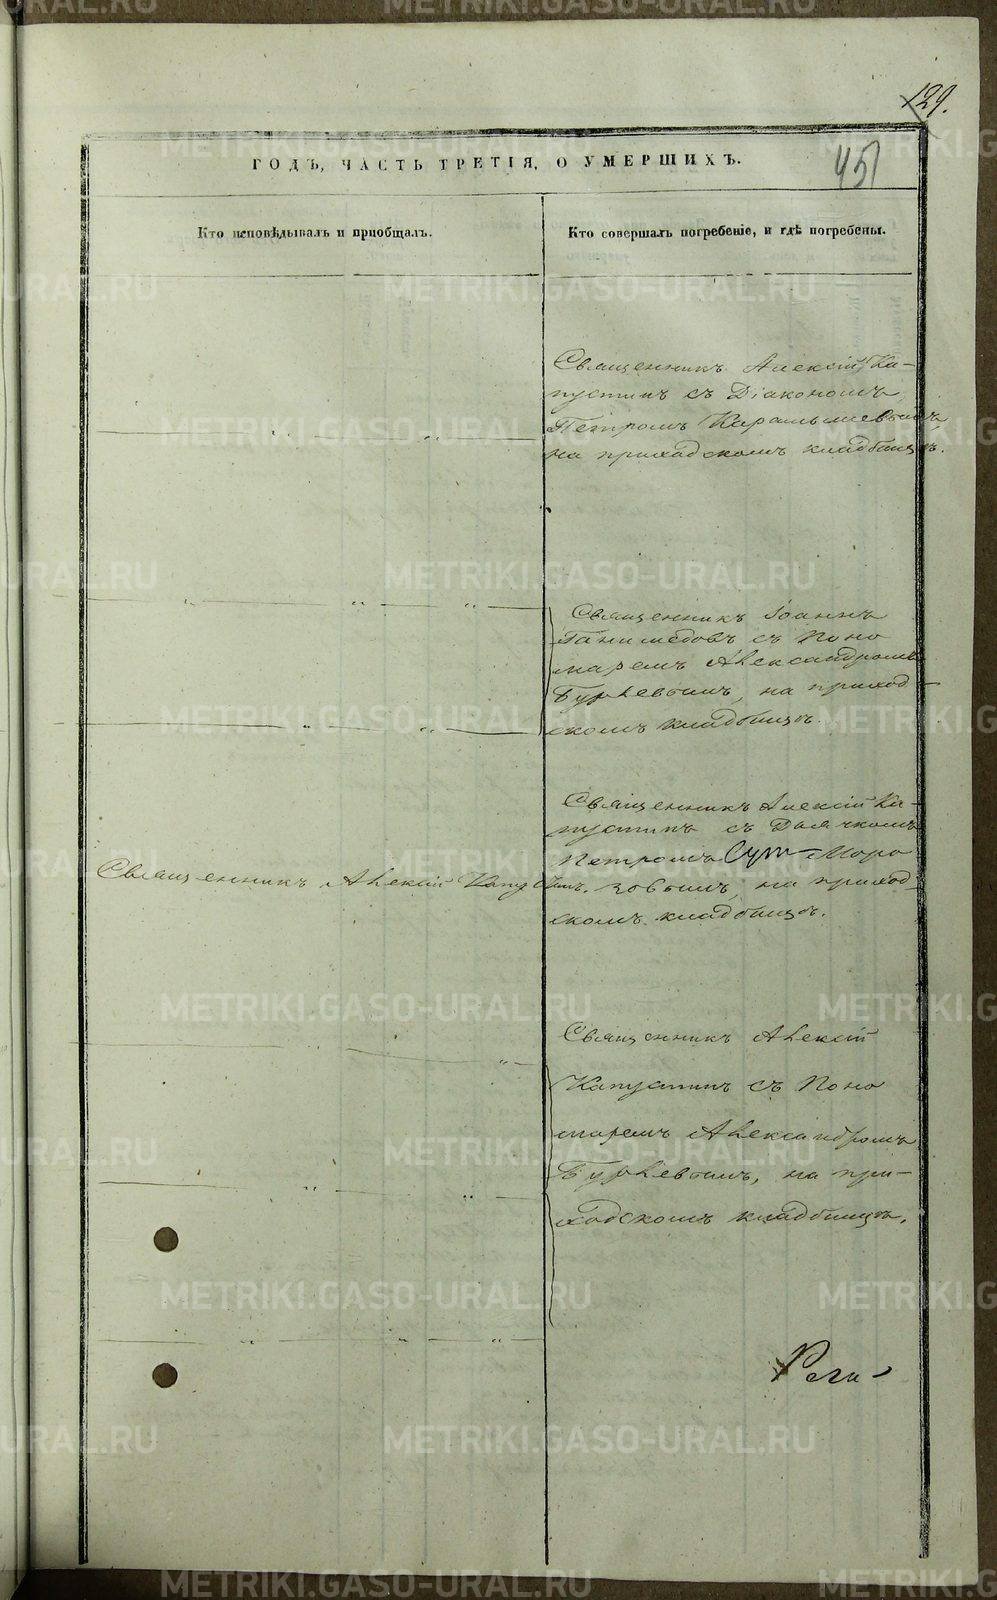 129.
ГОДЪ, ЧАСТЬ ТРЕТІЯ, О УМЕРШИХЪ.
451
Кто исповѣдывалъ и пріобщалъ.
Кто совершалъ погребеніе, и гдѣ погребены.
Священникъ Алексій Ка-
пустинъ съ Діакономъ
Петромъ Карамышевымъ,
на приходскомъ кладбищѣ.
Священникъ Іоаннъ
Ганимедовъ съ Поно
маремъ Александромъ
Бурлевымъ, на приход-
скомъ кладбищѣ.
Священникъ Алексій Ка-
пустинъ съ Дьячкомъ
Петромъ Моро
Священникъ Алексій Капустинъ. зовымъ, на приход-
скомъ кладбищѣ.
Священникъ Алексій
Капустинъ съ Поно
маремъ Александромъ
Бурлевымъ, на при-
ходскомъ кладбищѣ.
METRIKI.GASO-URAL.RU